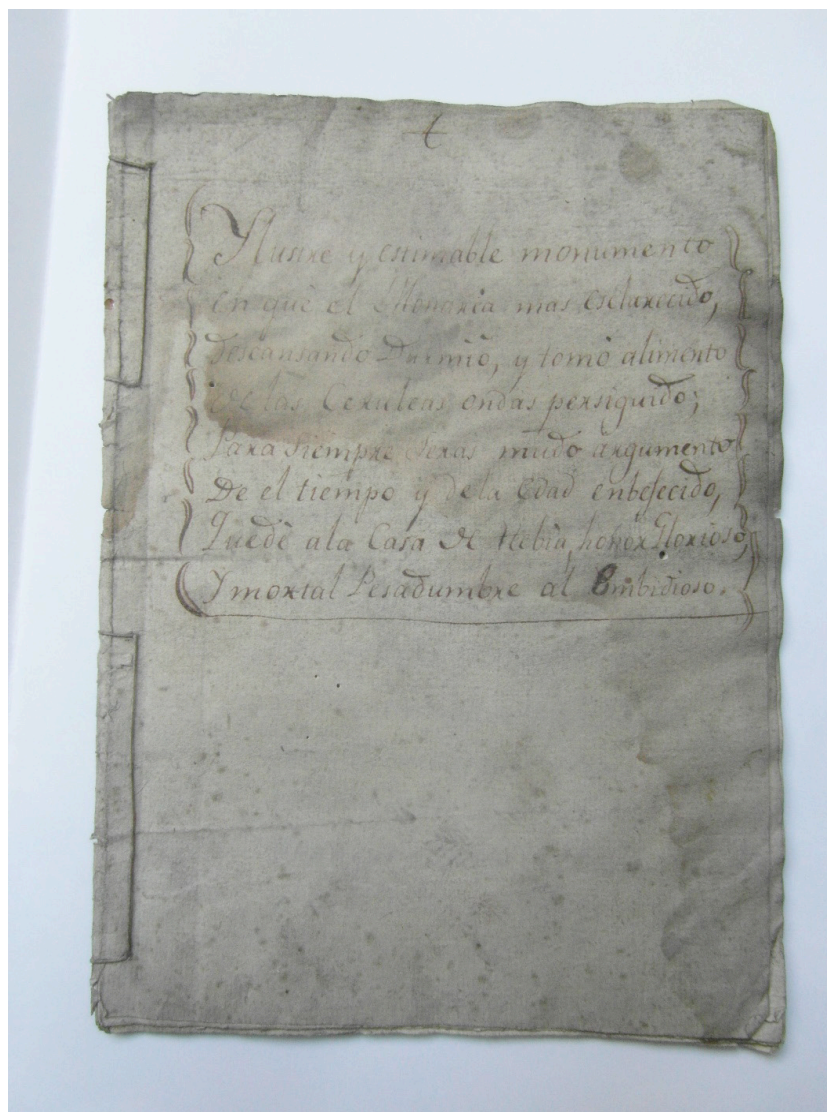 Ylustre y estimable monumento
en què el Monarca mas esclarecido,
Descansando Durmiò, y tomò alimento
de las Ceruleas ondas persiguido;
Para Siempre seras mudo argumento
De el tiempo y dela Edad enbejecido,
Quedè ala Casa de Hebia honor Glorioso,
Y mortal Pesadumbre al Embidioso.